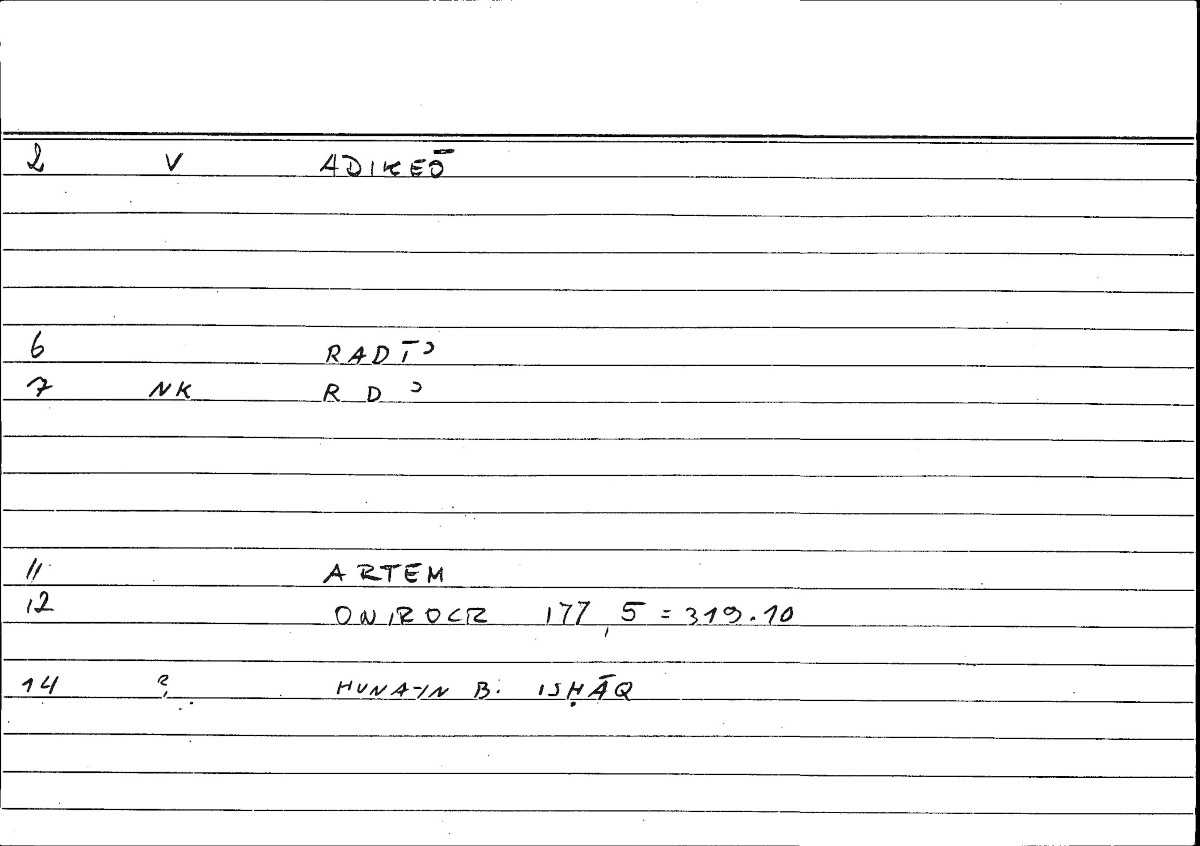 2 V ADIKEŌ
6 RADĪʾ
7 NK R D ʾ
11 ARTEM
12 ONIROCR 177,5=319.10
14 ? HUNAYN B. ISḤĀQ